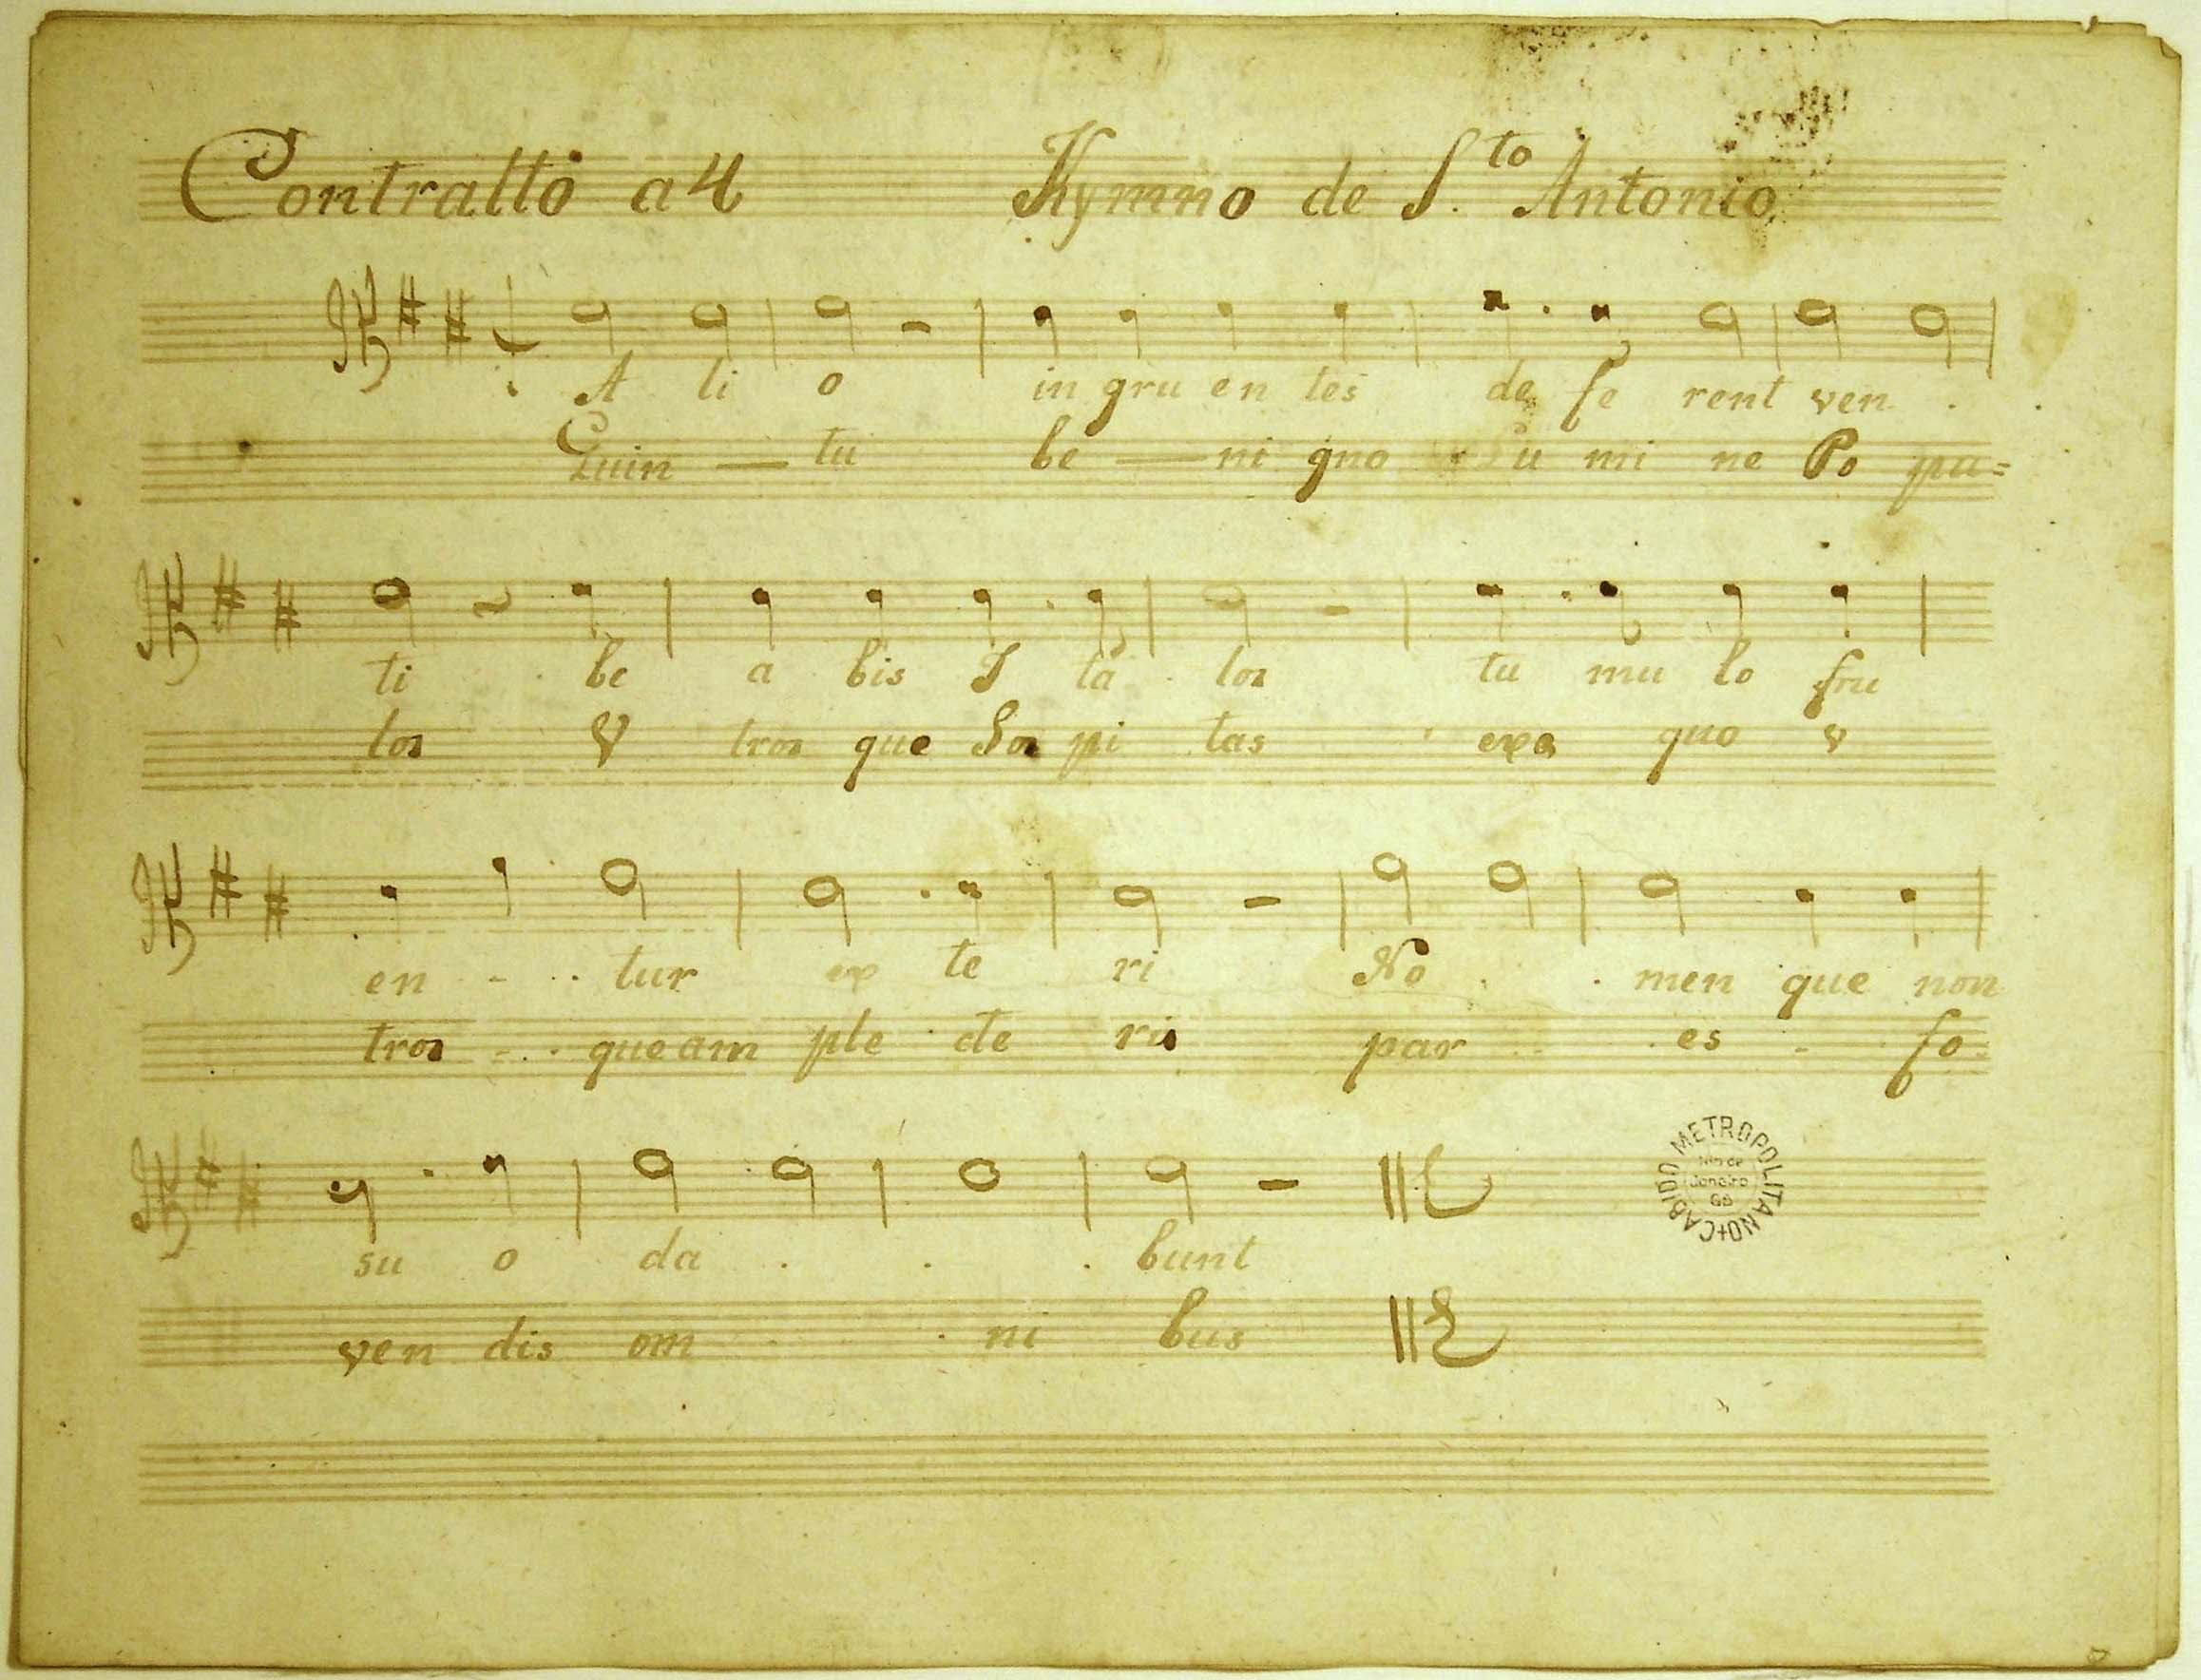 Contralto a 4 Hymno de S.to Antonio
A li o in gru en tes de fe rent ven .
Quin — tu be — ni gno Nu mi ne Po pu=
ti be a bis I ta los tu mu lo fru
los V tros que Sos pi tas exa quo v
en - . . tur ex te ri No . . men que non
tros - . . que am ple cte ris par es - fo
su o da . . . bunt
CABIDO METROPOLITANO + Rio de Janeiro GB
ven dis om . ni bus